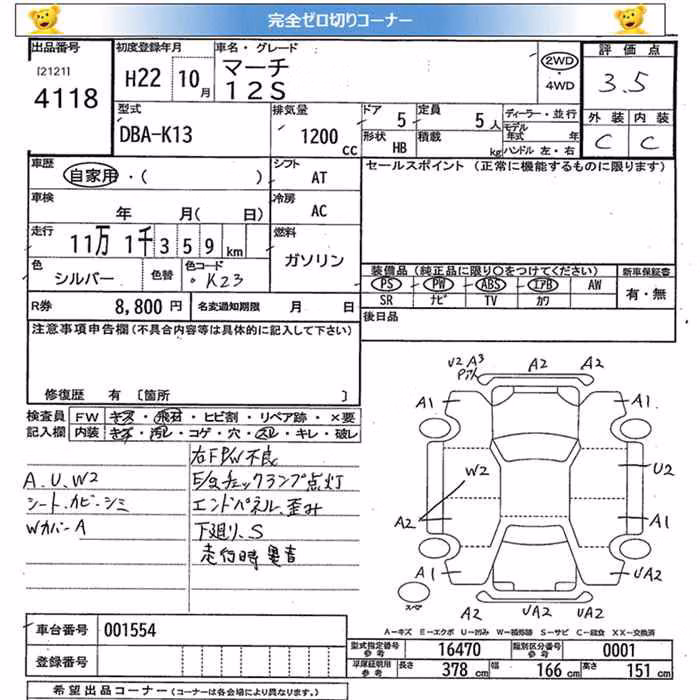 完全ゼロ切りコーナー
出品番号 [2121] 4118
初度登録年月 H22 10月
車名・グレード マーチ 12S
2WD・4WD
評価点 3.5
外装 内装
C C
型式 DBA-K13
排気量 1200cc
ドア 5
定員 5人
形状 HB
積載 kg
ディーラー・並行
モデル年式 年
ハンドル 左・右
車歴 自家用・( )
シフト AT
セールスポイント (正常に機能するものに限ります)
車検 年 月( 日)
冷房 AC
走行 11万 1千359km
燃料 ガソリン
色 シルバー 色替 色コード ・K23
装備品 (純正品に限り○をつけてください) 新車保証書
PS PW ABS エアB AW 有・無
SR ナビ TV カワ
R券 8,800円 名変通知期限 月 日
後日品
注意事項申告欄 (不具合内容等は具体的に記入して下さい)
修復歴 有 [箇所 ]
検査員 FW キズ・飛石・ヒビ割・リペア跡・×要
記入欄 内装 キズ・汚レ・コゲ・穴・スレ・キレ・破レ
右FPW不良
A.U.W2 E/gチェックランプ点灯
シート.カビ.シミ エンドパネル.歪み
Wカバー A 下廻り.S
走行時異音
U2 A3 A2 A2
A1 A1
W2 U2
A2 A1
A1 UA2
スペア
A2 UA2 UA2
A-キズ E-エクボ U-凹み W-補修跡 S-サビ C-腐食 XX-交換済
車台番号 001554
登録番号
型式指定番号 参考 16470 類別区分番号 参考 0001
車庫証明用 参考 長さ 378cm 幅 166cm 高さ 151cm
希望出品コーナー (コーナーは各会場により異なります。)